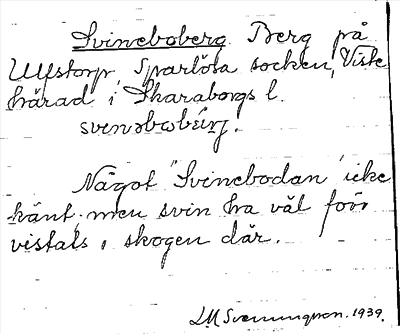 Svineboberg. Berg på
Ulfstorp, Sparlösa socken, Viste
härad i Skaraborgs l.
svenobobärj.
Något "Svinebodan" icke
känt, men svin ha väl förr
vistats i skogen där.
LM Svenungsson. 1939.